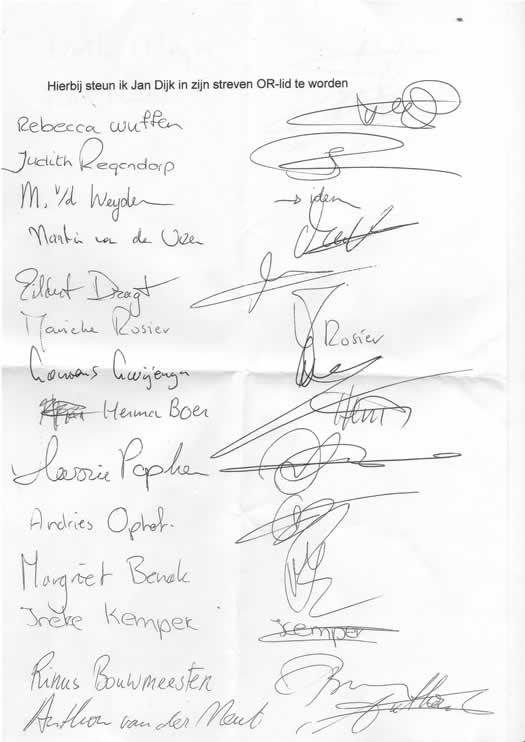 Hierbij steun ik Jan Dijk in zijn streven OR-lid te worden
Rebecca Wuffen
Judith Regendorp
M. v/d Weyden → idem
Martin van de
Dragt
Marieke Rosier Rosier
Herma Boer
Papken
Andries Ophof.
Margriet Benak
Ineke Kemper Kemper
Rinus Bouwmeester
Anthon van der Meut